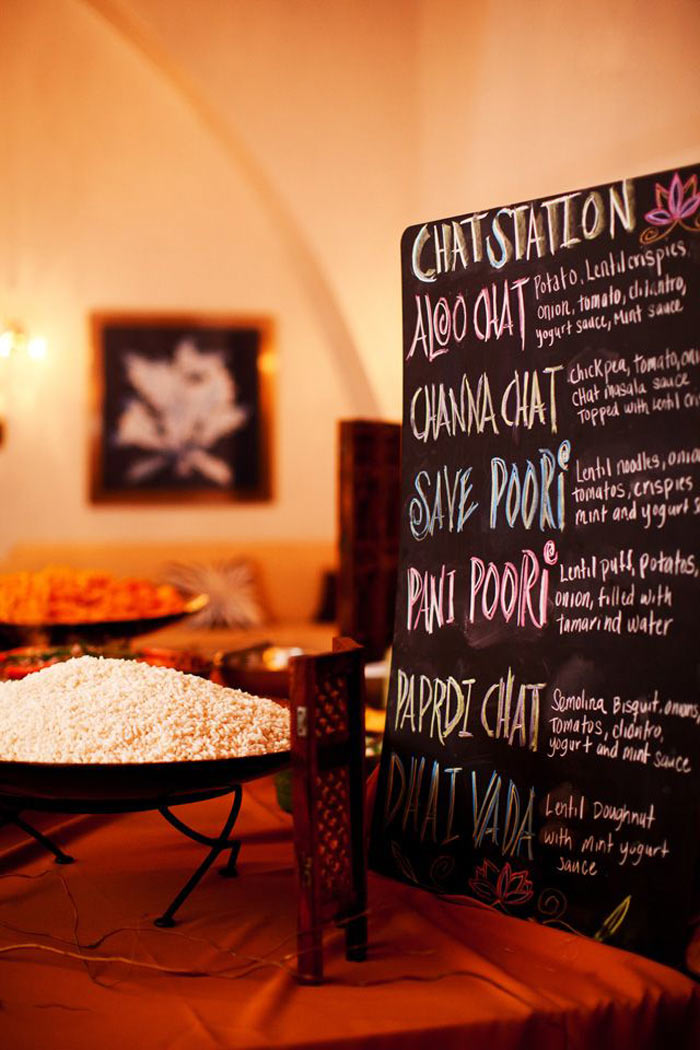 CHAT STATION
ALOO CHAT
Potato, Lentil crispies,
onion, tomato, cilantro,
yogurt sauce, Mint sauce
CHANNA CHAT
chickpea, tomato,
chat masala sauce
Topped with lentil
SAVE POORi
Lentil noodles,
tomatos, crispies
mint and yogurt
PANI POORi
Lentil puff, potatos,
onion, filled with
tamarind water
PAPRDI CHAT
Semolina Bisquit, onions,
Tomatos, cilantro,
yogurt and mint sauce
DHAI VADA
Lentil Doughnut
with mint yogurt
sauce